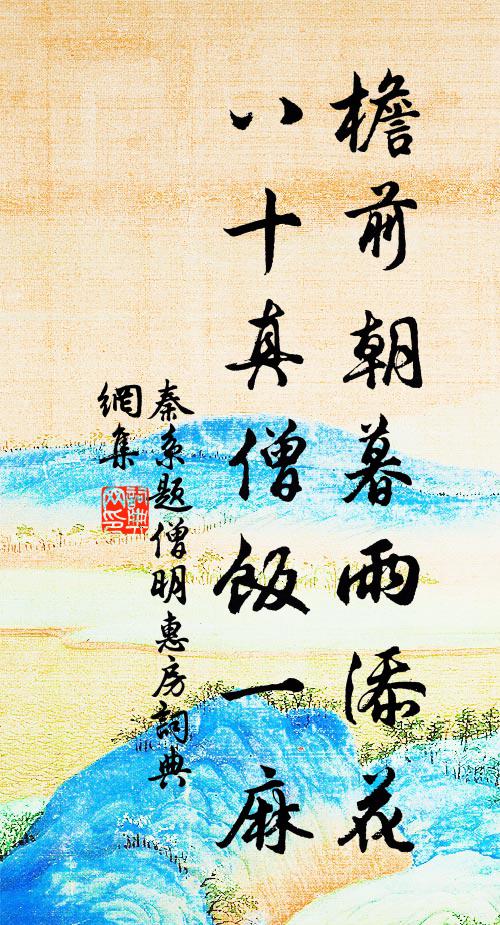 檐前朝暮雨添花
八十真僧飯一麻
秦系題僧明惠房詞典
網集
詞典
网印